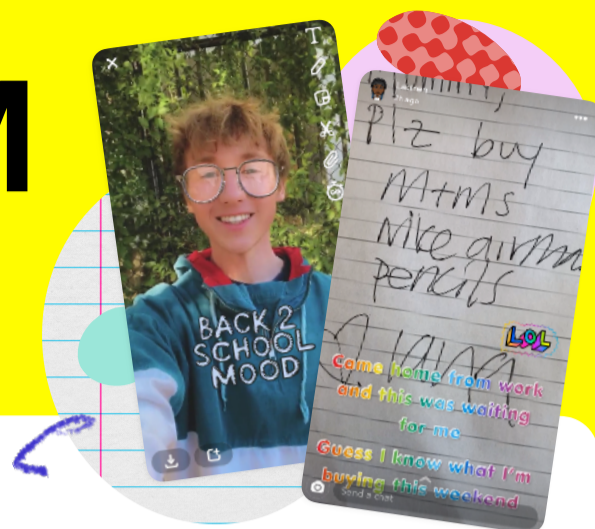 M
T
BACK 2
SCHOOL
MOOD
h ago
Plz buy
M+Ms
Nike
pencils
LOL
Came home from work
and this was waiting
for me
Guess I know what I'm
buying this weekend
Send a chat